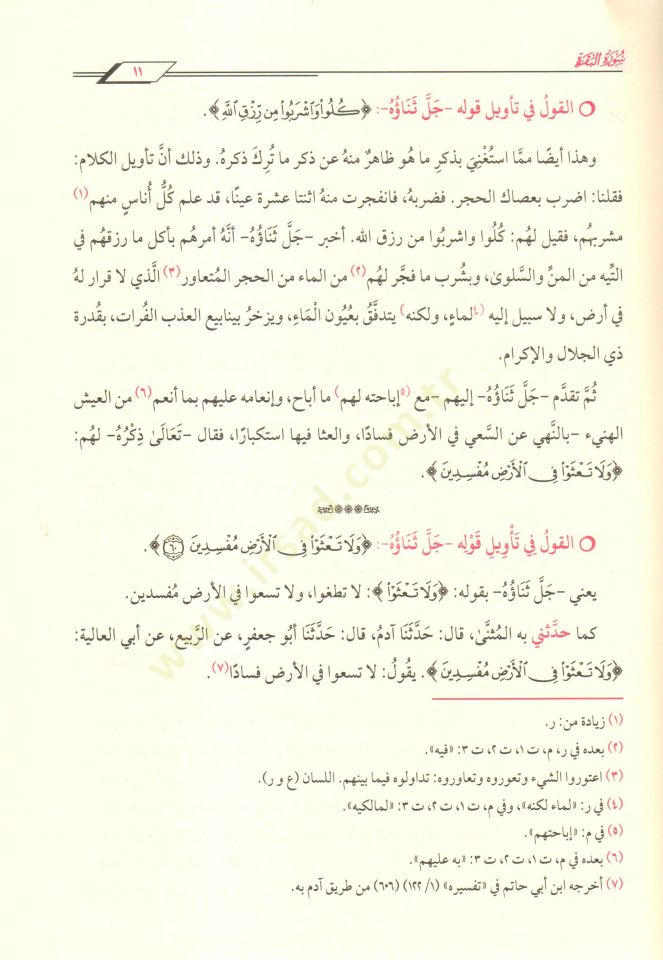 سُورَةُ البَقَرَةِ
١١
القولُ في تأويل قوله -جَلَّ ثَنَاؤُهُ-: ﴿كُلُوا۟ وَٱشْرَبُوا۟ مِن رِّزْقِ ٱللَّهِ﴾.
وهذا أيضًا ممَّا استُغْنِيَ بذكرِ ما هُو ظاهرٌ منهُ عن ذكر ما تُرِكَ ذكرهُ. وذلك أنَّ تأويل الكلام:
فقلنا: اضرب بعصاك الحجر. فضربهُ، فانفجرت منهُ اثنتا عشرة عينًا، قد علم كُلُّ أُناسٍ منهم(١)
مشربهُم، فقيل لهُم: كُلُوا واشربُوا من رزق الله. أخبر -جَلَّ ثَنَاؤُهُ- أنَّهُ أمرهُم بأكل ما رزقهُم في
التِّيه من المنِّ والسَّلوىٰ، وبشُرب ما فجَّر لهُم(٢) من الماء من الحجر المُتعاور(٣) الَّذي لا قرار لهُ
في أرضٍ، ولا سبيل إليه (٤لماءٍ، ولكنه) يتدفَّقُ بعُيُون الْمَاءِ، ويزخرُ بينابيع العذب الفُرات، بقُدرة
ذي الجلال والإكرام.
ثُمَّ تقدَّم -جَلَّ ثَنَاؤُهُ- إليهم -مع (٥إباحته لهم) ما أباح، وإنعامه عليهم بما أنعم(٦) من العيش
الهنيء -بالنَّهي عن السَّعي في الأرض فسادًا، والعثا فيها استكبارًا، فقال -تَعَالَىٰ ذِكْرُهُ- لهُم:
﴿وَلَا تَعْثَوْا۟ فِى ٱلْأَرْضِ مُفْسِدِينَ﴾.
القولُ فِي تَأْوِيلِ قَوْلِه -جَلَّ ثَنَاؤُهُ-: ﴿وَلَا تَعْثَوْا۟ فِى ٱلْأَرْضِ مُفْسِدِينَ ٦٠﴾.
يعني -جَلَّ ثَنَاؤُهُ- بقوله: ﴿وَلَا تَعْثَوْا۟﴾: لا تطغوا، ولا تسعوا في الأرض مُفسدين.
كما حدَّثني به المُثنَّىٰ، قال: حَدَّثَنَا آدمُ، قال: حَدَّثَنَا أبُو جعفرٍ، عن الرَّبيع، عن أبي العالية:
﴿وَلَا تَعْثَوْا۟ فِى ٱلْأَرْضِ مُفْسِدِينَ﴾. يقُولُ: لا تسعوا في الأرض فسادًا(٧).
(١) زيادة من: ر.
(٢) بعده في ر، م، ت ١، ت ٢، ت ٣: «فيه».
(٣) اعتوروا الشيء وتعوروه وتعاوروه: تداولوه فيما بينهم. اللسان (ع و ر).
(٤) في ر: «لماء لكنه»، وفي م، ت ١، ت ٢، ت ٣: «لمالكيه».
(٥) في م: «إباحتهم».
(٦) بعده في م، ت ١، ت ٢، ت ٣: «به عليهم».
(٧) أخرجه ابن أبي حاتم في «تفسيره» (١/ ١٢٢) (٦٠٦) من طريق آدم به.
www.irsad.com.tr